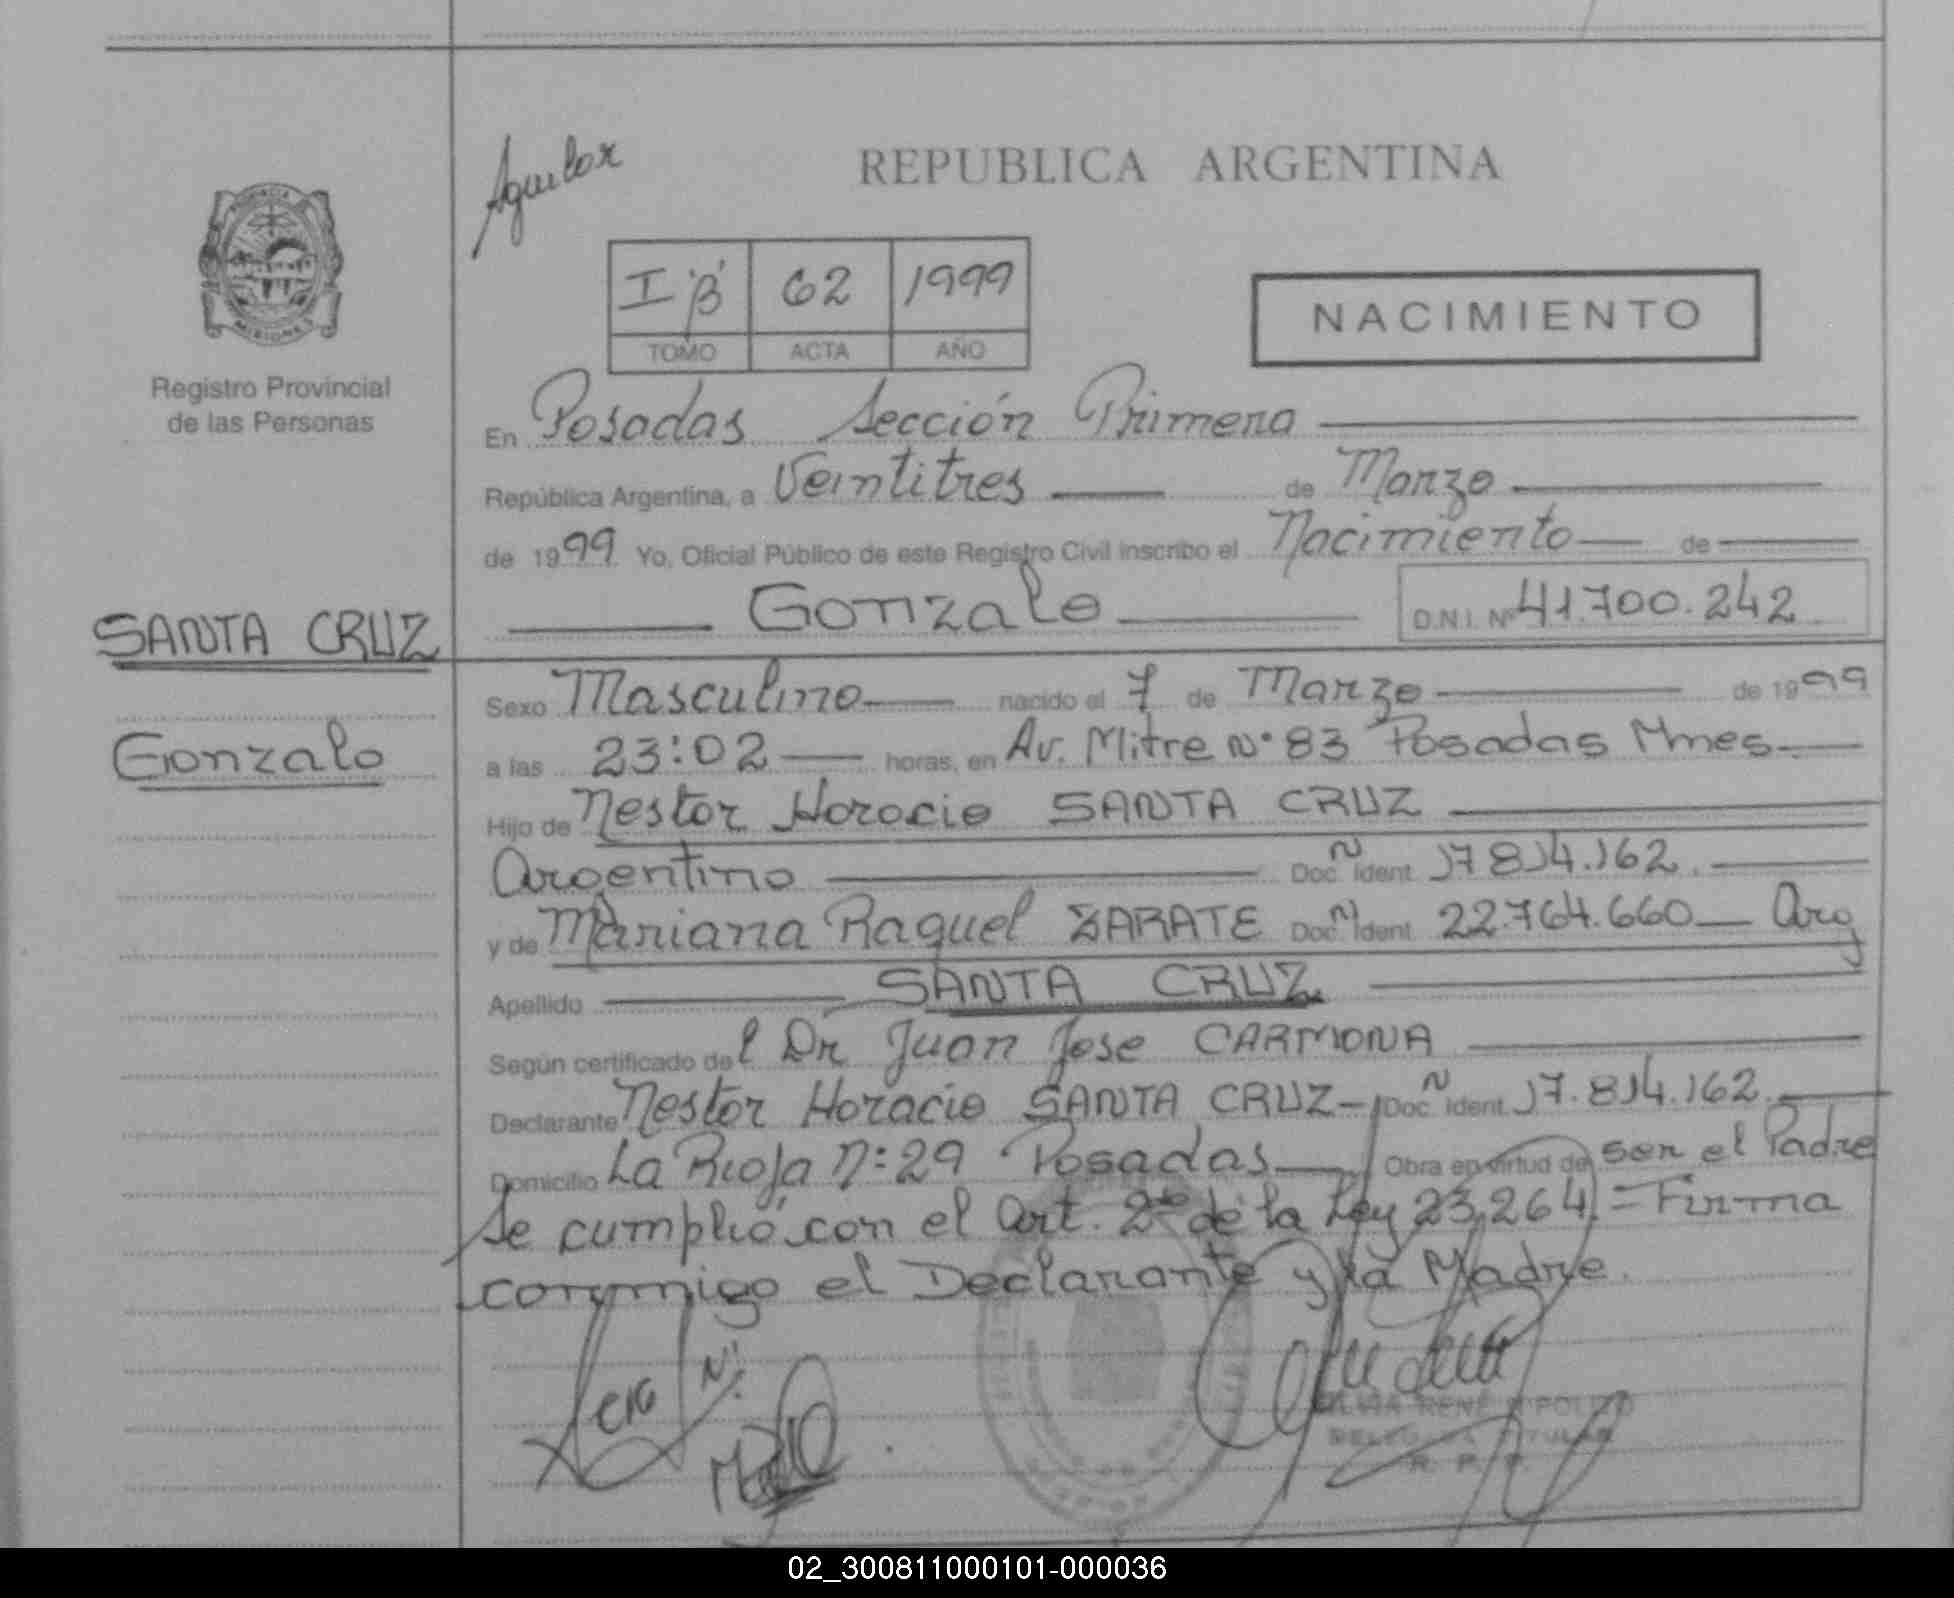 Aguilar
REPUBLICA ARGENTINA
PROVINCIA
MISIONES
Registro Provincial
de las Personas
I "B" 62 1999
TOMO ACTA AÑO
NACIMIENTO
En Posadas Sección Primera
República Argentina, a Veintitres de Marzo
de 1999 Yo, Oficial Público de este Registro Civil inscribo el Nacimiento de
Gonzalo D.N.I. Nº 41.700.242
SANTA CRUZ
Gonzalo
Sexo Masculino nacido el 7 de Marzo de 1999
a las 23:02 horas, en Av. Mitre Nº 83 Posadas Mnes
Hijo de Nestor Horacio SANTA CRUZ
Argentino Doc. Ñ Ident. 17814.162.
y de Mariana Raquel ZARATE Doc. Ñ Ident. 22.764.660 Arg
Apellido SANTA CRUZ
Según certificado del Dr Juan Jose CARMONA
Declarante Nestor Horacio SANTA CRUZ Doc. Ñ Ident. 17.814.162
Domicilio La Rioja N: 29 Posadas Obra en virtud de ser el Padre
Se cumplió con el Art. 2do de la Ley 23,264 = Firma
conmigo el Declarante y la Madre.
R. P. P.
02_300811000101-000036